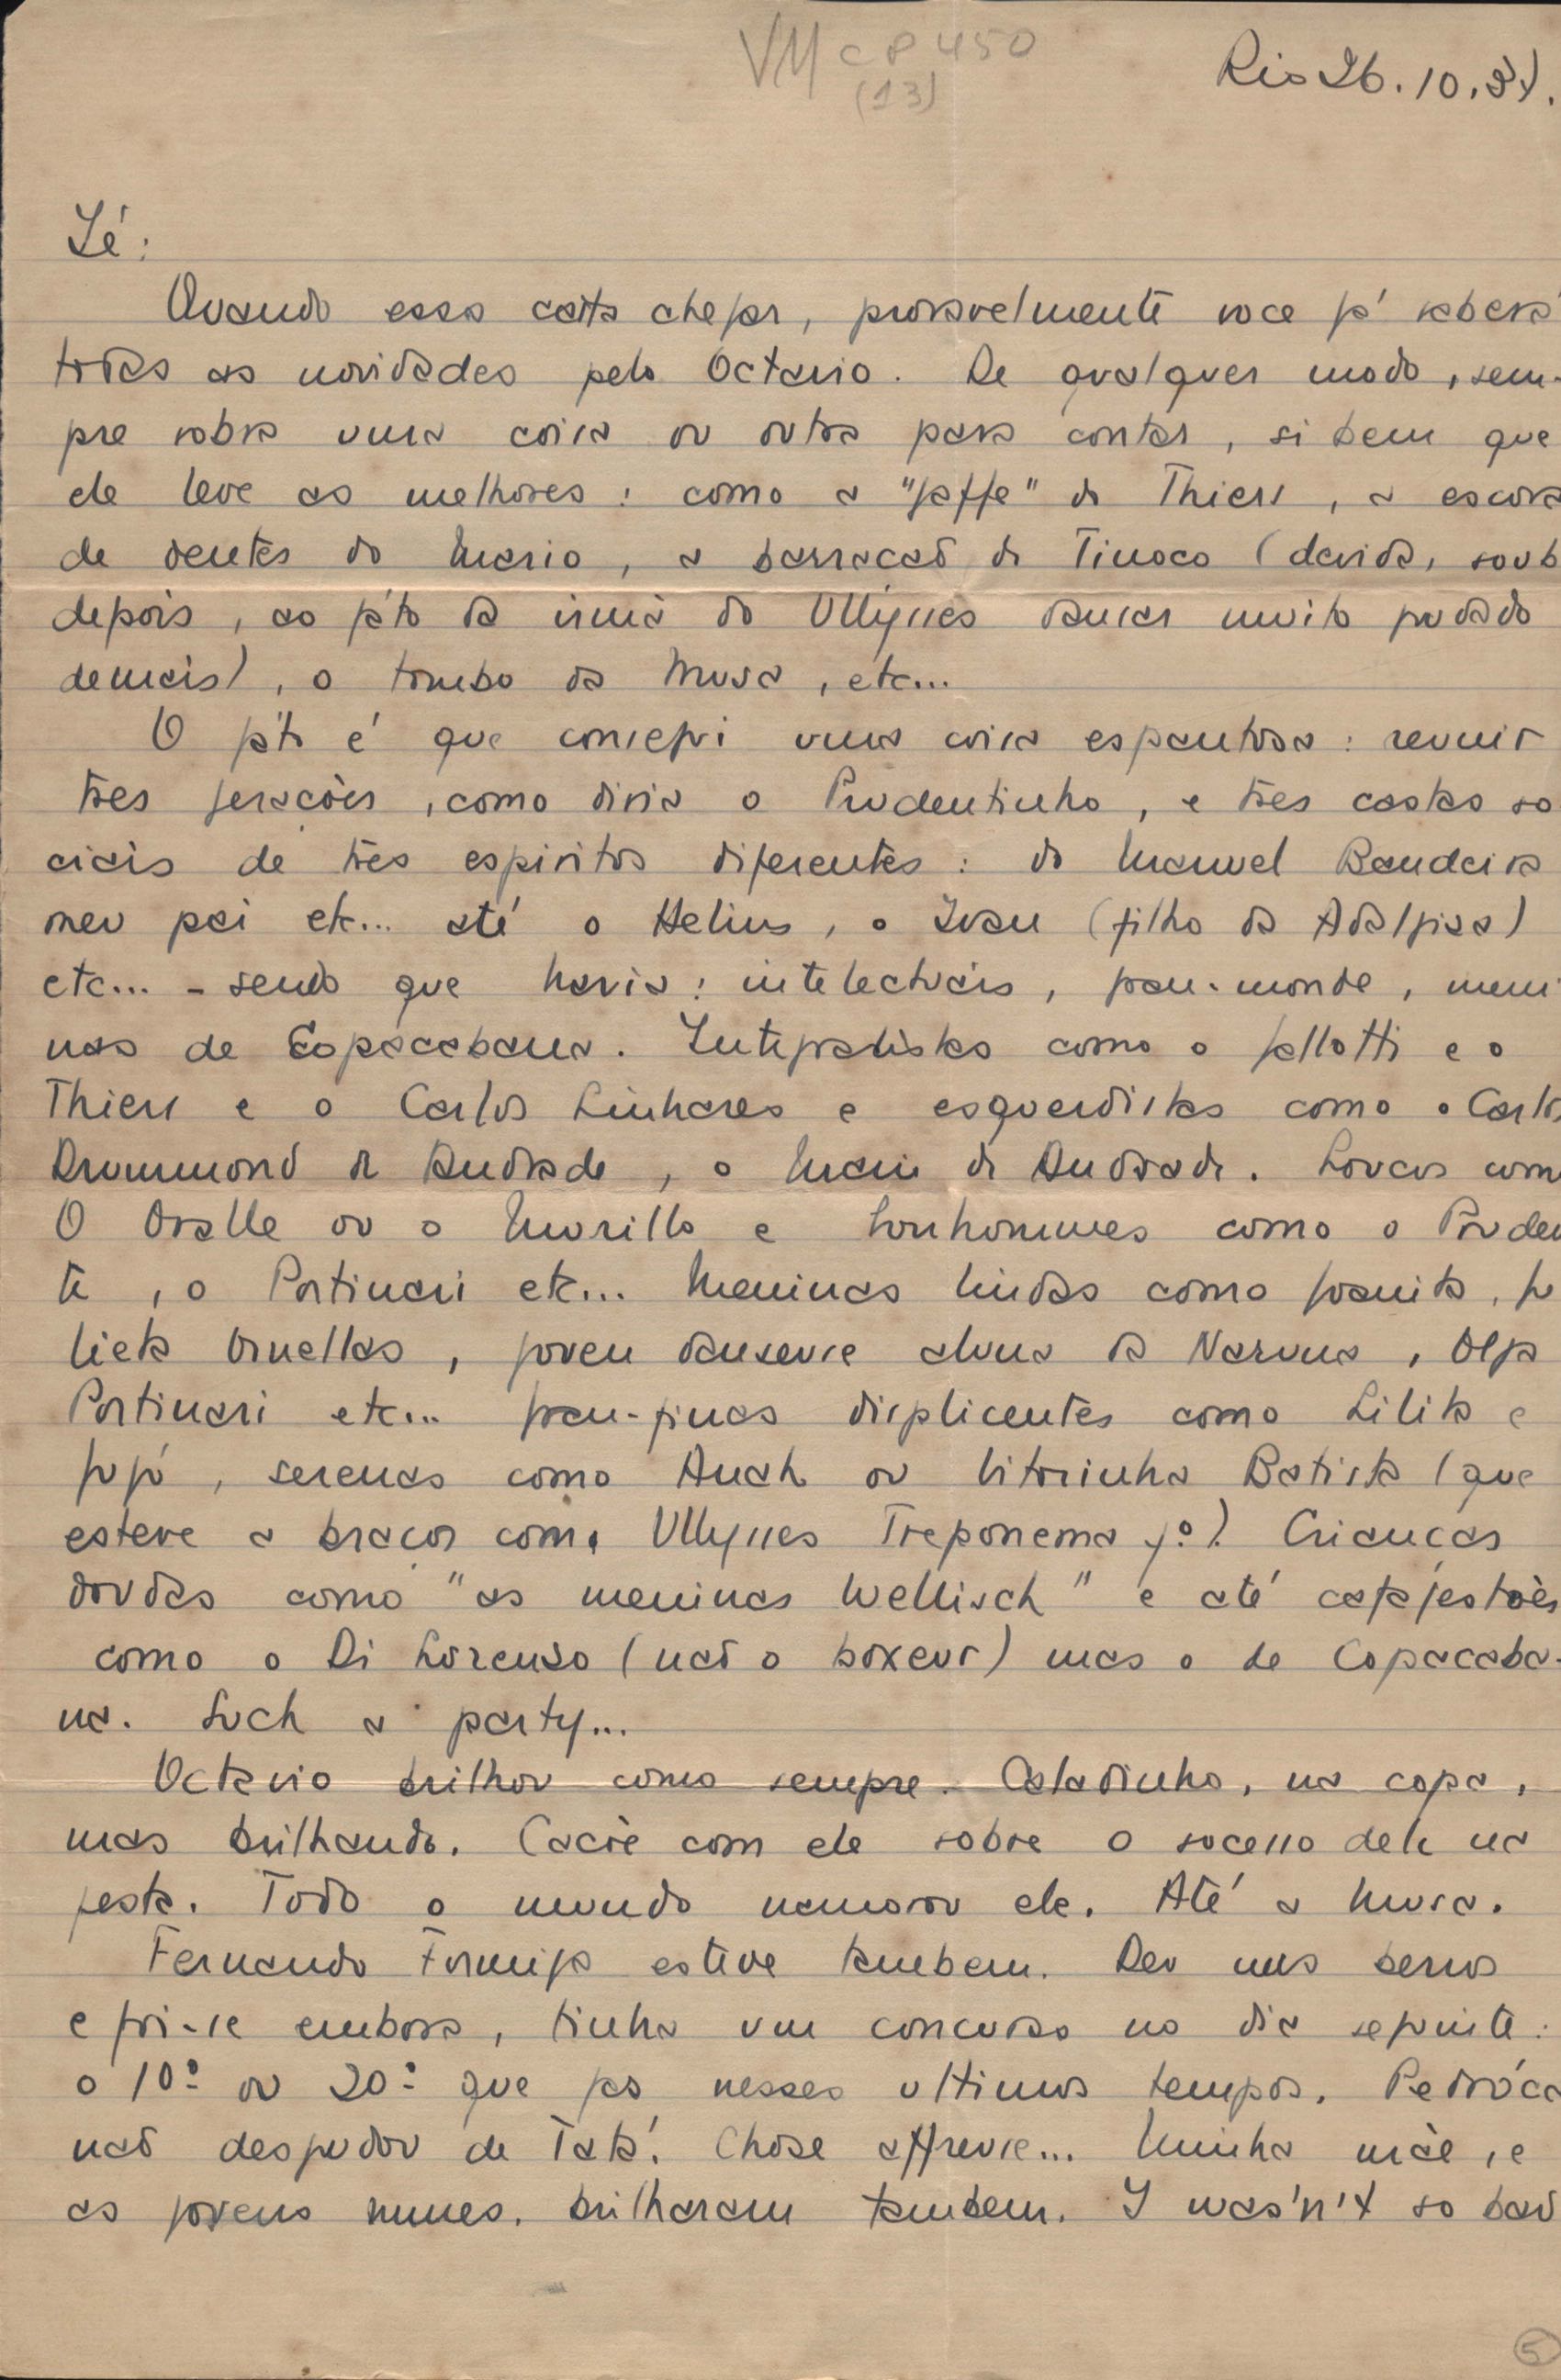 VM cp 450
(13)
Rio 26.10.37.
Zé:
Quando essa carta chegar, provavelmente voce já saberá
todas as novidades pelo Octavio. De qualquer modo, sem-
pre sobra uma coisa ou outra para contar, si bem que
ele leve as melhores: como a "gaffe" do Thiers, a escova
de dentes do Mario, a barracaõ do Tinoco (devida, soub
depois, ao fáto da irmã do Ullysses dansar muito grudado
demais), o tombo da Musa, etc...
O fáto é que consegui uma coisa espantosa: reunir
três gerações, como diria o Prudentinho, e três castas so
ciais de três espiritos diferentes: do Manuel Bandeira
meu pai etc... até o Helius, o Ivan (filho da Adalgisa)
etc... - sendo que havia: intelectuáis, gran-monde, meni
nas de Copacabana. Integralistas como o Gallotti e o
Thiers e o Carlos Linhares e esquerdistas como o Carlos
Drummond de Andrade, o Mario de Andrade. Loucos com
O Ovalle ou o Murillo e bonhommes como o Pruden
te, o Portinari etc... Meninas lindas como Joanita, Ju
lieta Ornellas, jovem danseuse aluna da Naruna, Olga
Portinari etc... gran-finas displicentes como Lilita e
Jujú, serenas como Anah ou Vitorinha Batista (que
esteve a braços com Ullysses Treponema Jº). Crianças
doudas como "as meninas Wellisch" e até cafagestões
como o Di Lorenzo (naõ o boxeur) mas o de Copacaba-
na. Such a party...
Octavio brilhou como sempre. Caladinho, na copa,
mas brilhando. Cacôe com ele sobre o sucesso dele na
festa. Todo o mundo namorou ele. Até a Musa.
Fernando Formiga esteve tambem. Deu uns berros
e foi-se embora, tinha um concurso no dia seguinte:
o 10º ou 20º que faz nesses ultimos tempos. Pedróca
naõ desgrudou de Tatá. Chose affreuse... Minha mãe, e
as jovens numes, brilharam tambem. I was'n't so bad
5